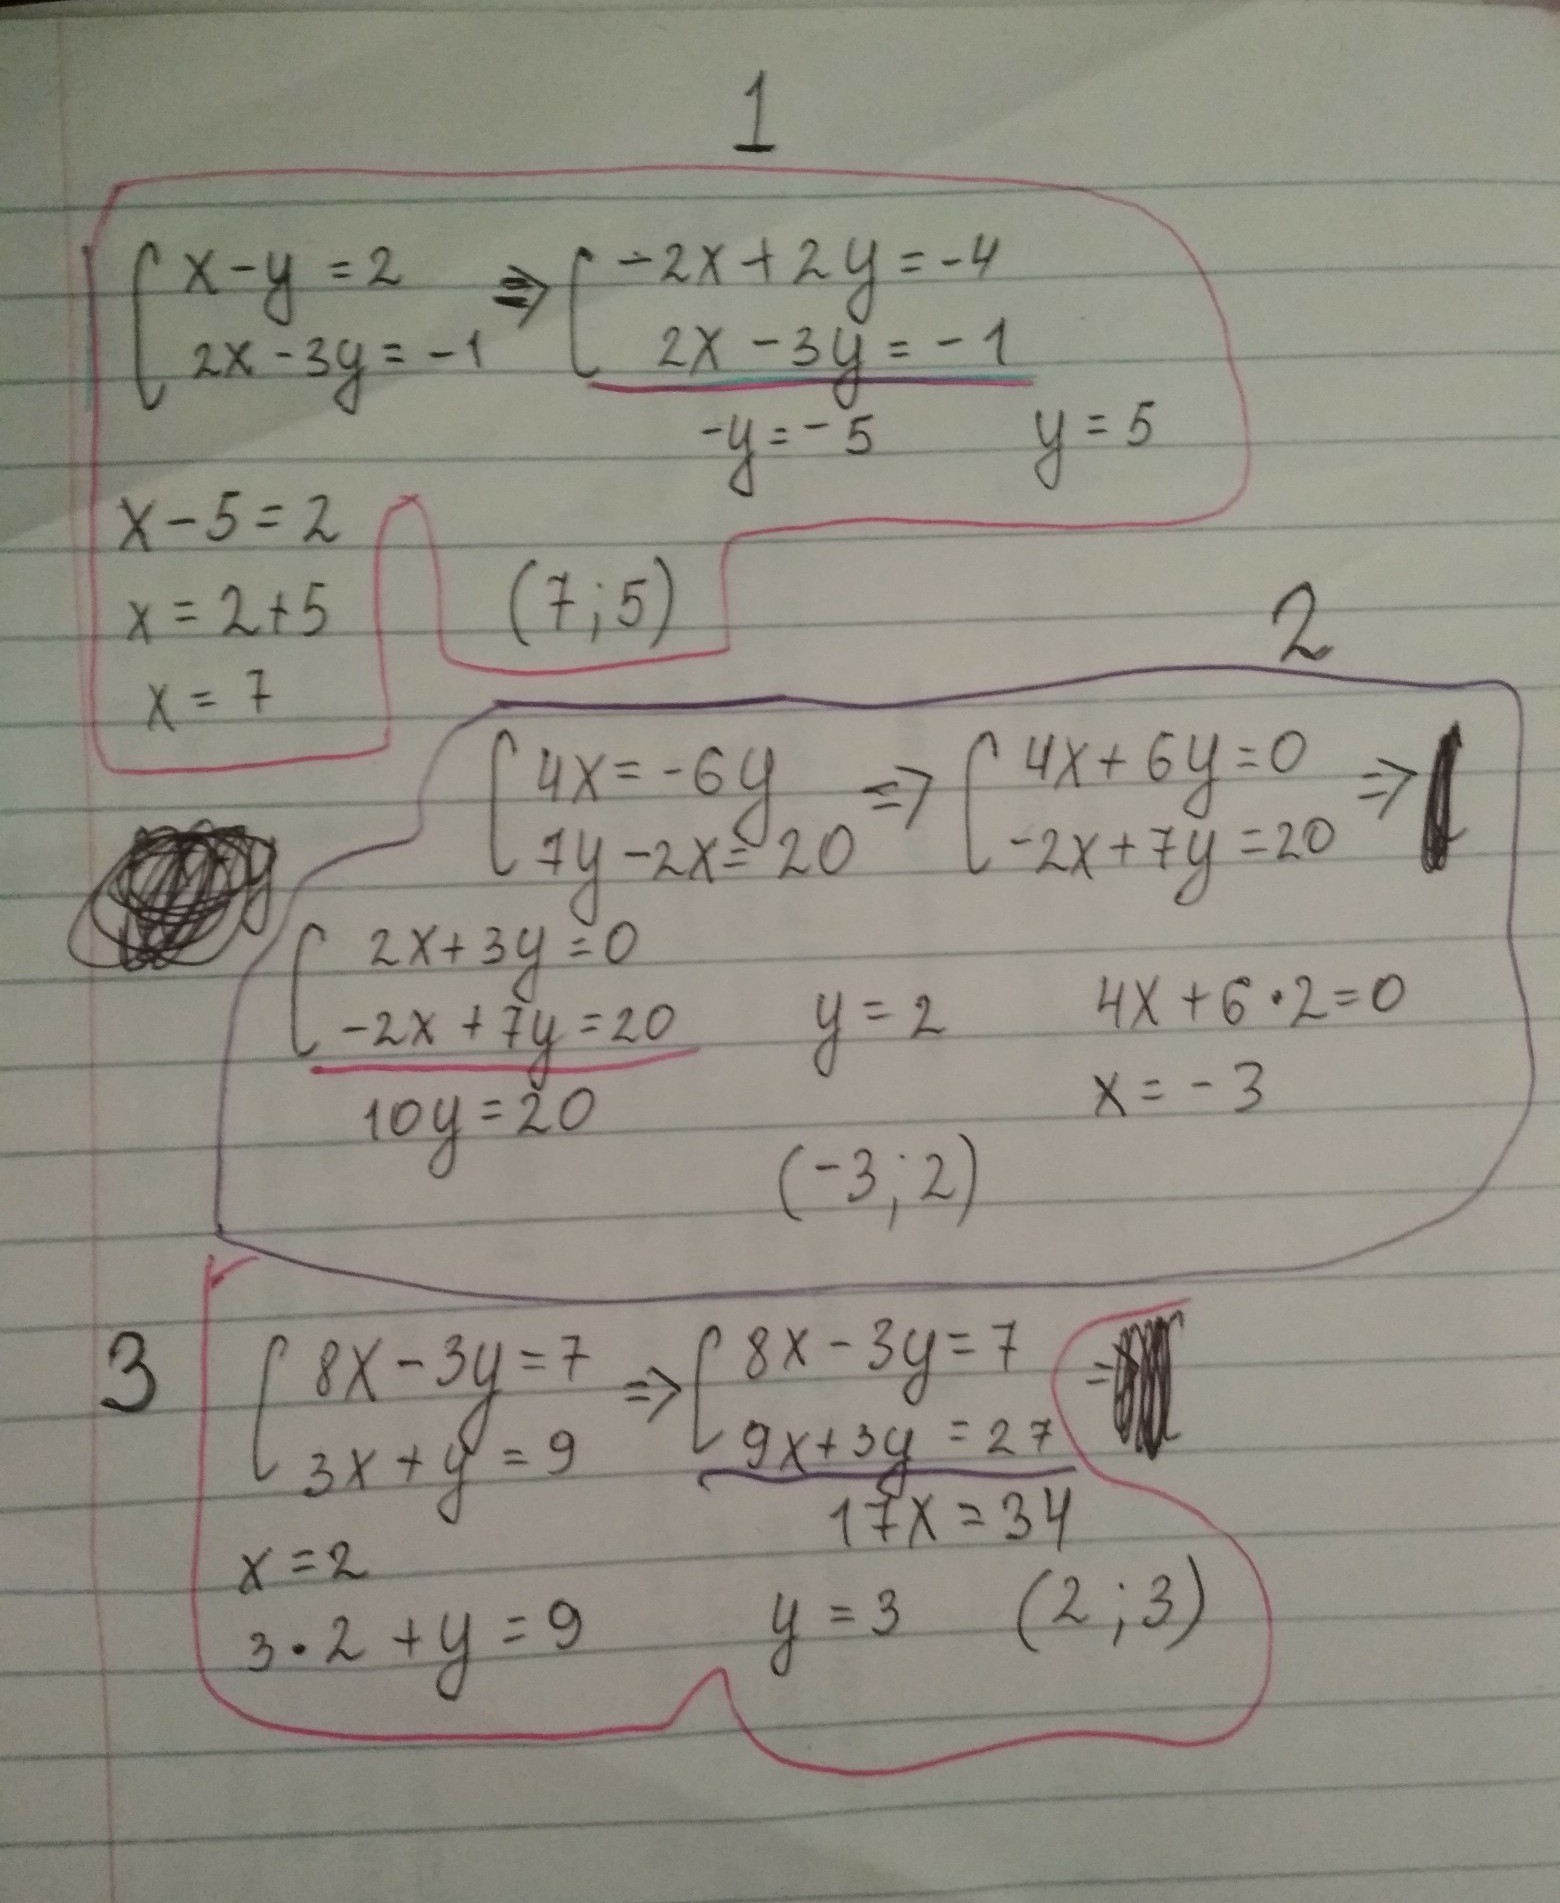 1
x-y=2 ⇒ -2x+2y=-4
2x-3y=-1 2x-3y=-1
-y=-5 y=5
x-5=2
x=2+5 (7;5)
x=7
2
4x=-6y ⇒ 4x+6y=0 ⇒
7y-2x=20 -2x+7y=20
2x+3y=0
-2x+7y=20 y=2 4x+6·2=0
10y=20 x=-3
(-3;2)
3
8x-3y=7 ⇒ 8x-3y=7 =
3x+y=9 9x+3y=27
17x=34
x=2
3·2+y=9 y=3 (2;3)